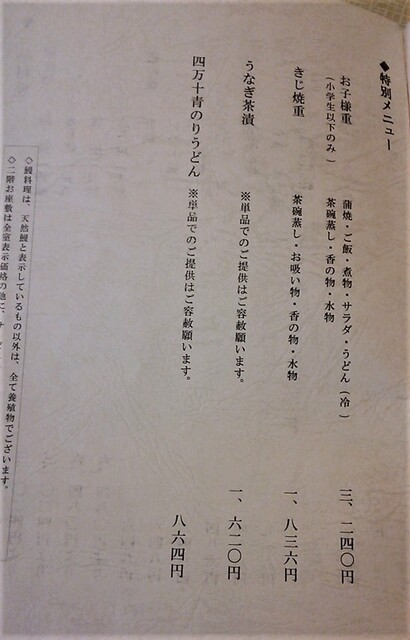 ◆特別メニュー
お子様重
（小学生以下のみ）
蒲焼・ご飯・煮物・サラダ・うどん（冷）
茶碗蒸し・香の物・水物
三、二四〇円
きじ焼重
茶碗蒸し・お吸い物・香の物・水物
一、八三六円
うなぎ茶漬
※単品でのご提供はご容赦願います。
一、六二〇円
四万十青のりうどん
※単品でのご提供はご容赦願います。
八六四円
◇鰻料理は、天然鰻と表示しているもの以外は、全て養殖物でございます。
◇二階お座敷は全室表示価格の他に、サ